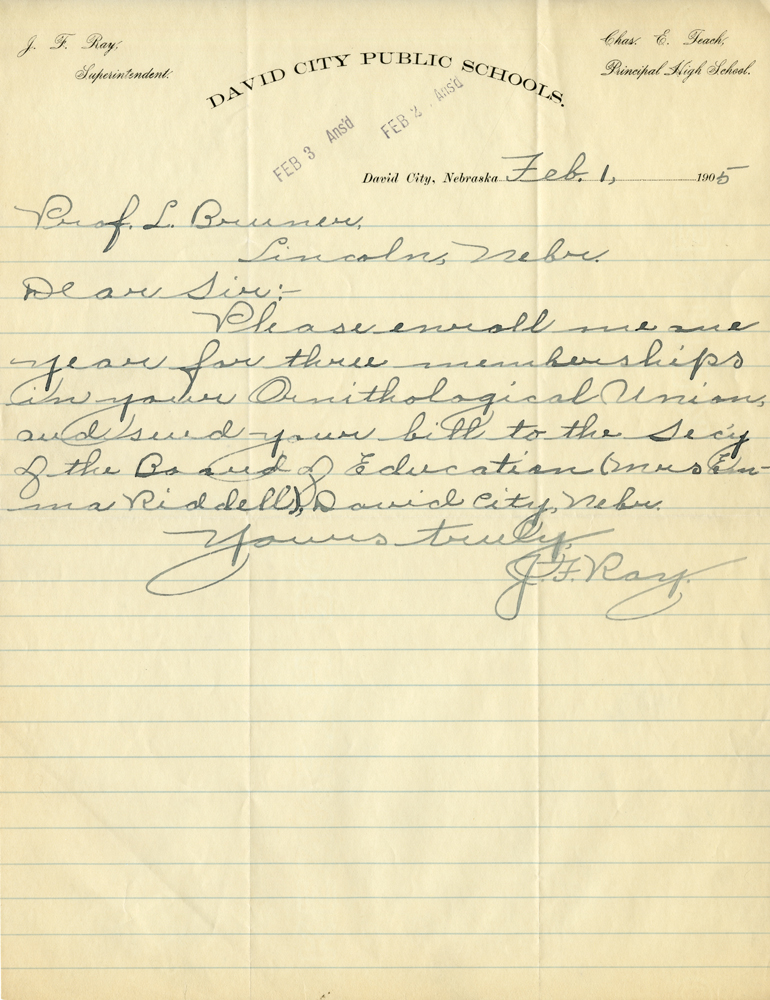 J. F. Ray,
Superintendent.
Chas. E. Teach,
Principal High School.
DAVID CITY PUBLIC SCHOOLS.
FEB 3 Ans'd
FEB 2 Ans'd
David City, Nebraska Feb. 1, 1905
Prof. L. Bruner,
Lincoln, Nebr.
Dear Sir:-
Please enroll me one
year for three memberships
in your Ornithological Union,
and send your bill to the Secy
of the Board of Education (Mrs Em-
ma Riddell), David City, Nebr.
Yours truly,
J. F. Ray.